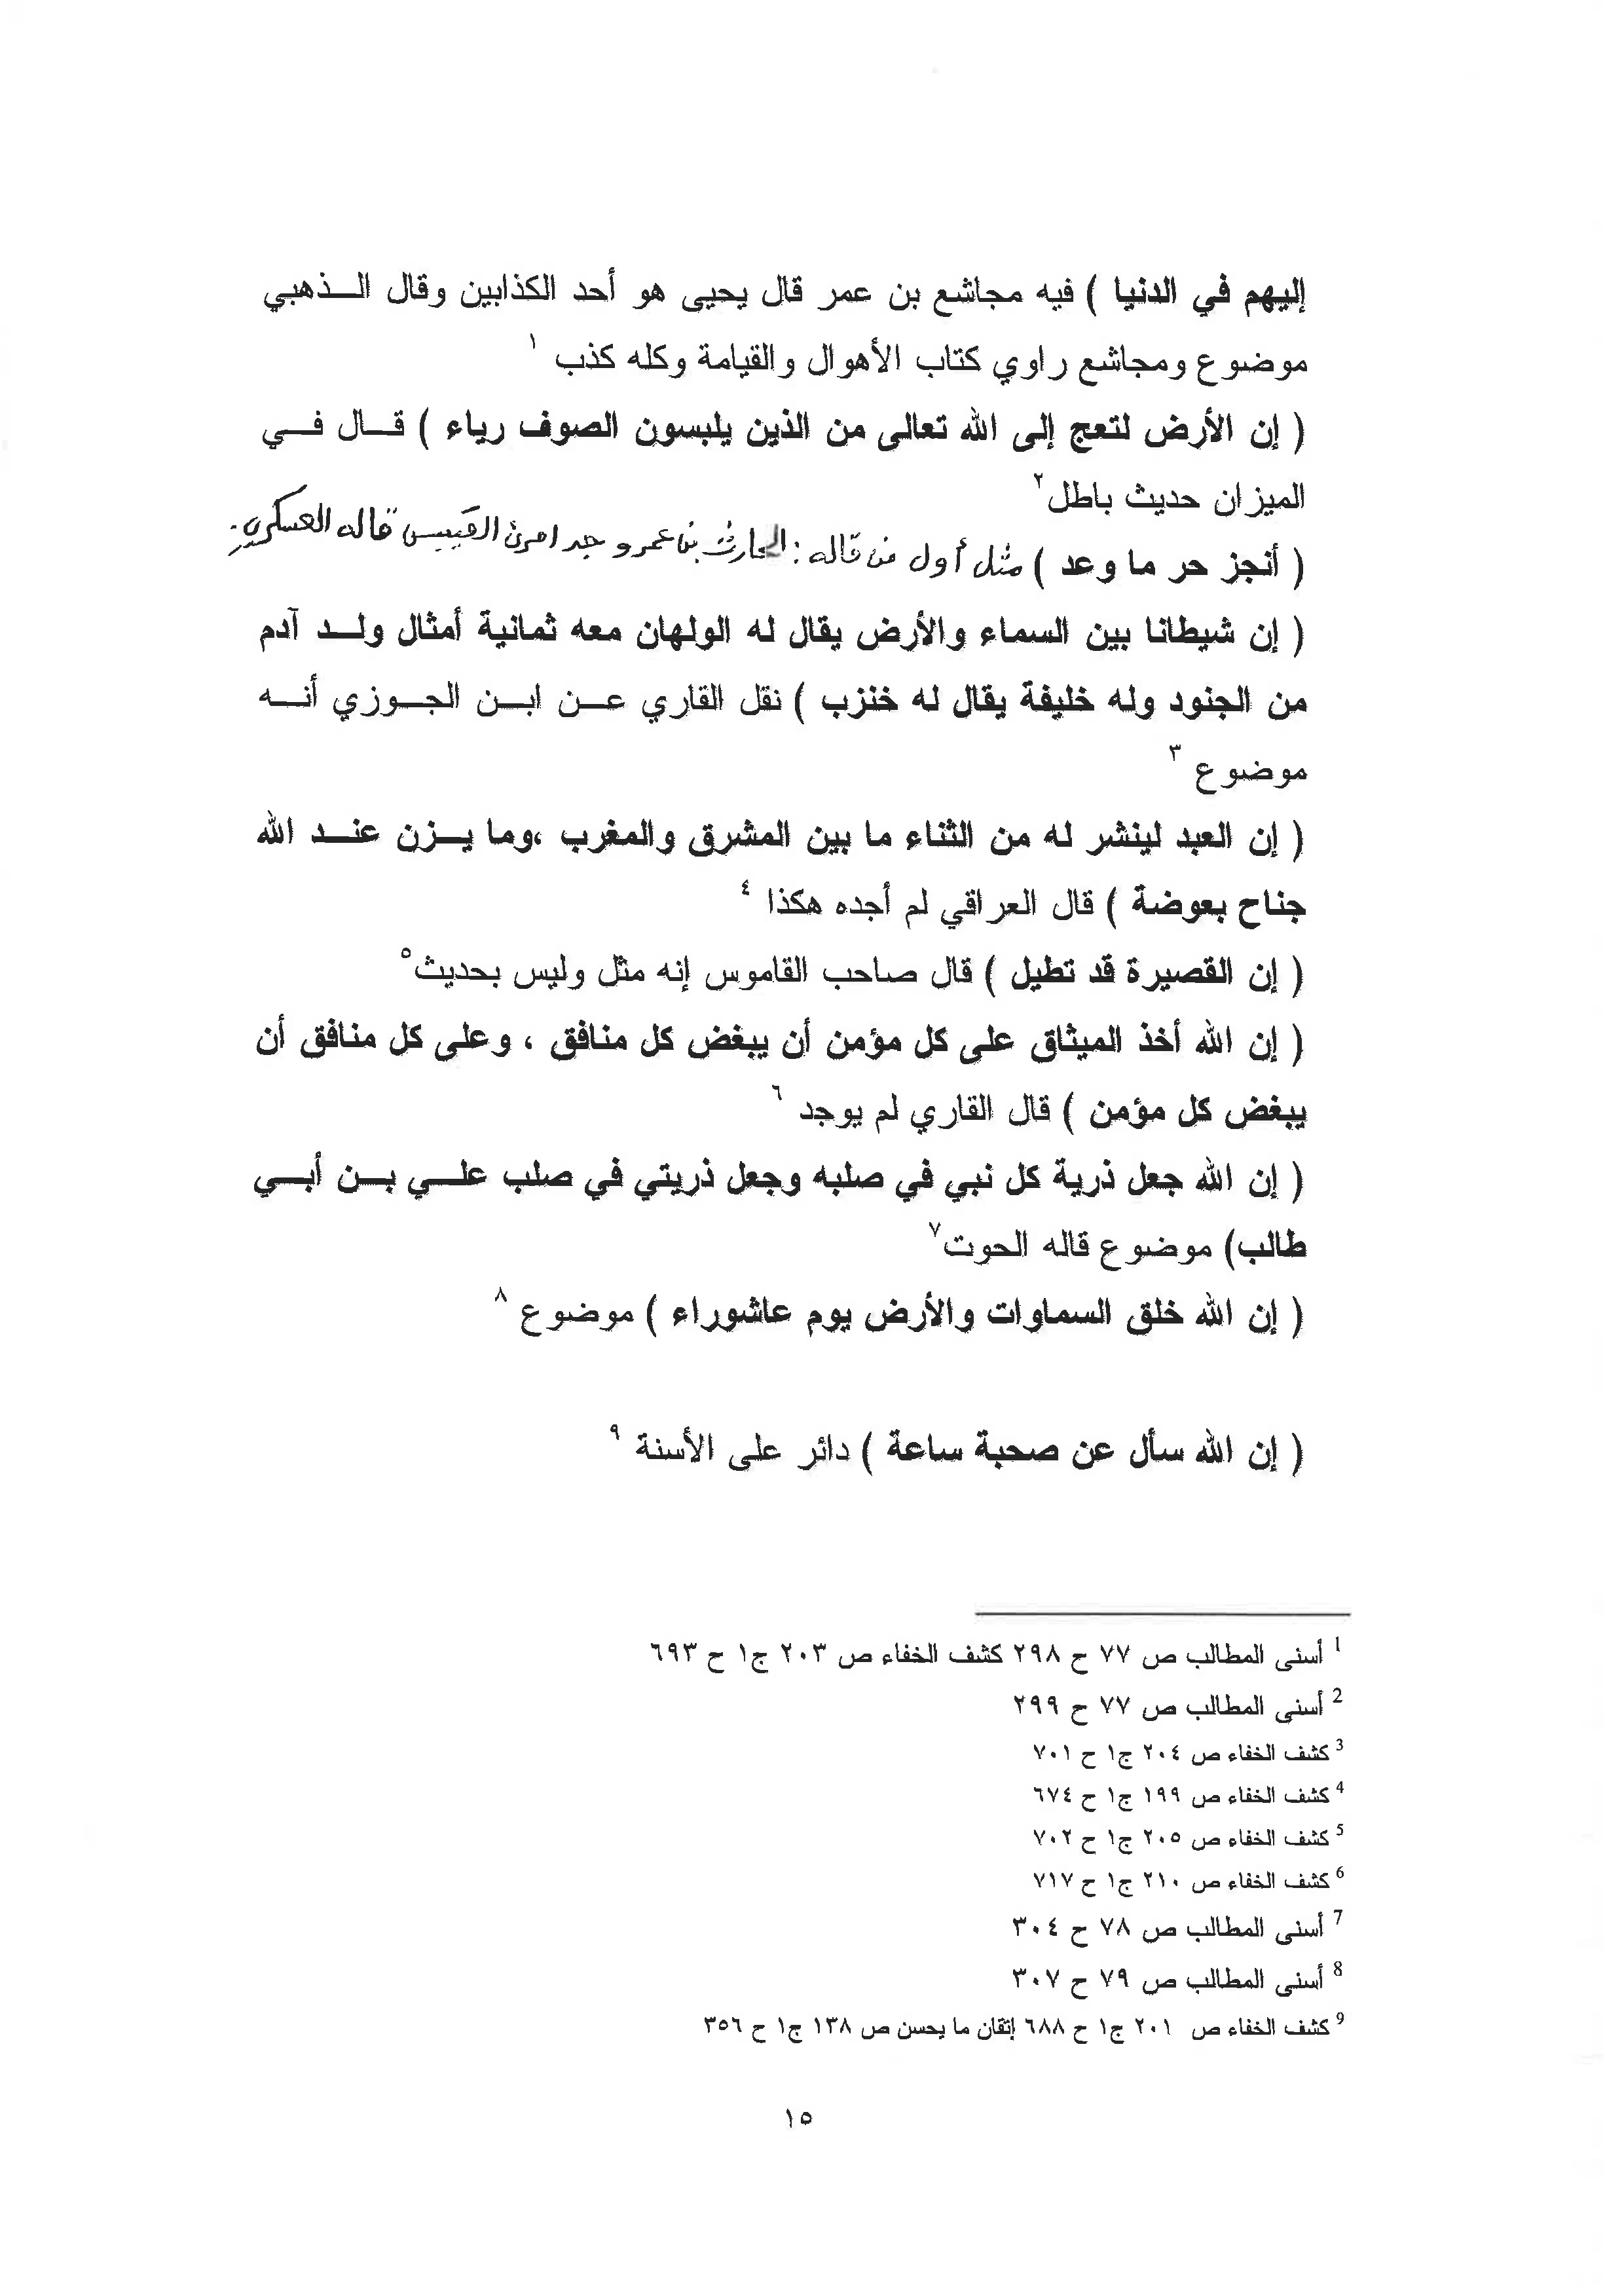 إليهم في الدنيا ) فيه مجاشع بن عمر قال يحيى هو أحد الكذابين وقال الـذهبي
موضوع ومجاشع راوي كتاب الأهوال والقيامة وكله كذب ١
( إن الأرض لتعج إلى الله تعالى من الذين يلبسون الصوف رياء ) قـال فـي
الميزان حديث باطل٢
( أنجز حر ما وعد ) مثل أول من قاله : الحارث بن عمرو جد امرئ القيس قاله العسكري.
( إن شيطانا بين السماء والأرض يقال له الولهان معه ثمانية أمثال ولـد آدم
من الجنود وله خليفة يقال له خنزب ) نقل القاري عـن ابـن الجـوزي أنـه
موضوع ٣
( إن العبد لينشر له من الثناء ما بين المشرق والمغرب ،وما يـزن عنـد الله
جناح بعوضة ) قال العراقي لم أجده هكذا ٤
( إن القصيرة قد تطيل ) قال صاحب القاموس إنه مثل وليس بحديث٥
( إن الله أخذ الميثاق على كل مؤمن أن يبغض كل منافق ، وعلى كل منافق أن
يبغض كل مؤمن ) قال القاري لم يوجد ٦
( إن الله جعل ذرية كل نبي في صلبه وجعل ذريتي في صلب علـي بـن أبـي
طالب) موضوع قاله الحوت٧
( إن الله خلق السماوات والأرض يوم عاشوراء ) موضوع ٨
( إن الله سأل عن صحبة ساعة ) دائر على الأسنة ٩
1 أسنى المطالب ص ٧٧ ح ٢٩٨ كشف الخفاء ص ٢٠٣ ج١ ح ٦٩٣
2 أسنى المطالب ص ٧٧ ح ٢٩٩
3 كشف الخفاء ص ٢٠٤ ج١ ح ٧٠١
4 كشف الخفاء ص ١٩٩ ج١ ح ٦٧٤
5 كشف الخفاء ص ٢٠٥ ج١ ح ٧٠٢
6 كشف الخفاء ص ٢١٠ ج١ ح ٧١٧
7 أسنى المطالب ص ٧٨ ح ٣٠٤
8 أسنى المطالب ص ٧٩ ح ٣٠٧
9 كشف الخفاء ص ٢٠١ ج١ ح ٦٨٨ إتقان ما يحسن ص ١٣٨ ج١ ح ٣٥٦
١٥